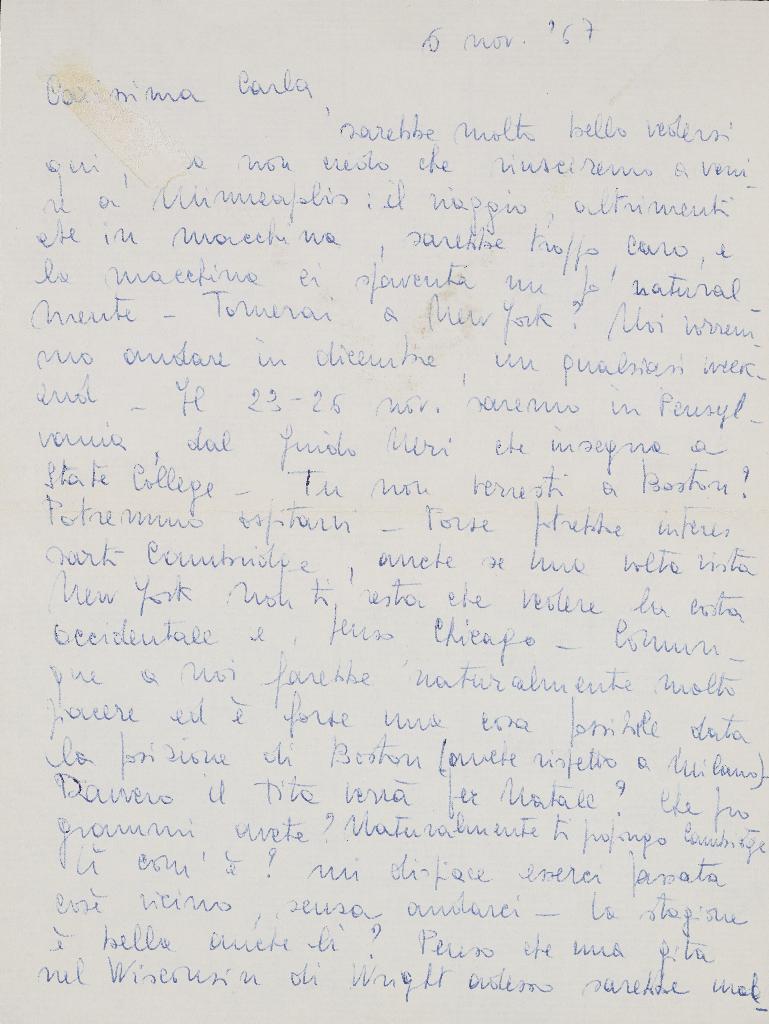 6 nov. '67
Carissima Carla,
sarebbe molto bello vedersi
qui, a non credo che riusciremo a veni-
re a Minneapolis: il viaggio, altrimenti
che in macchina, sarebbe troppo caro, e
la macchina ci spaventa un po' natural-
mente - Tornerai a New York? Noi vorrem-
mo andare in dicembre, un qualsiasi week-
end - Il 23-26 nov. saremo in Pensyl-
vania, dal Guido Neri che insegna a
State College - Tu non verresti a Boston?
Potremmo ospitarti - Forse potrebbe interes
sarti Cambridge, anche se una volta vista
New York non ti resta che vedere la costa
occidentale e, penso Chicago - Comun-
que a noi farebbe naturalmente molto
piacere ed è forse una cosa possibile data
la posizione di Boston (anche rispetto a Milano)
Davvero il Tita verrà per Natale? Che pro
grammi avete? Naturalmente ti propongo Cambridge
Lì com'è? mi dispiace esserci passata
così vicino, senza andarci - La stagione
è bella anche lì? Penso che una gita
nel Wisconsin di Wright adesso sarebbe mol-